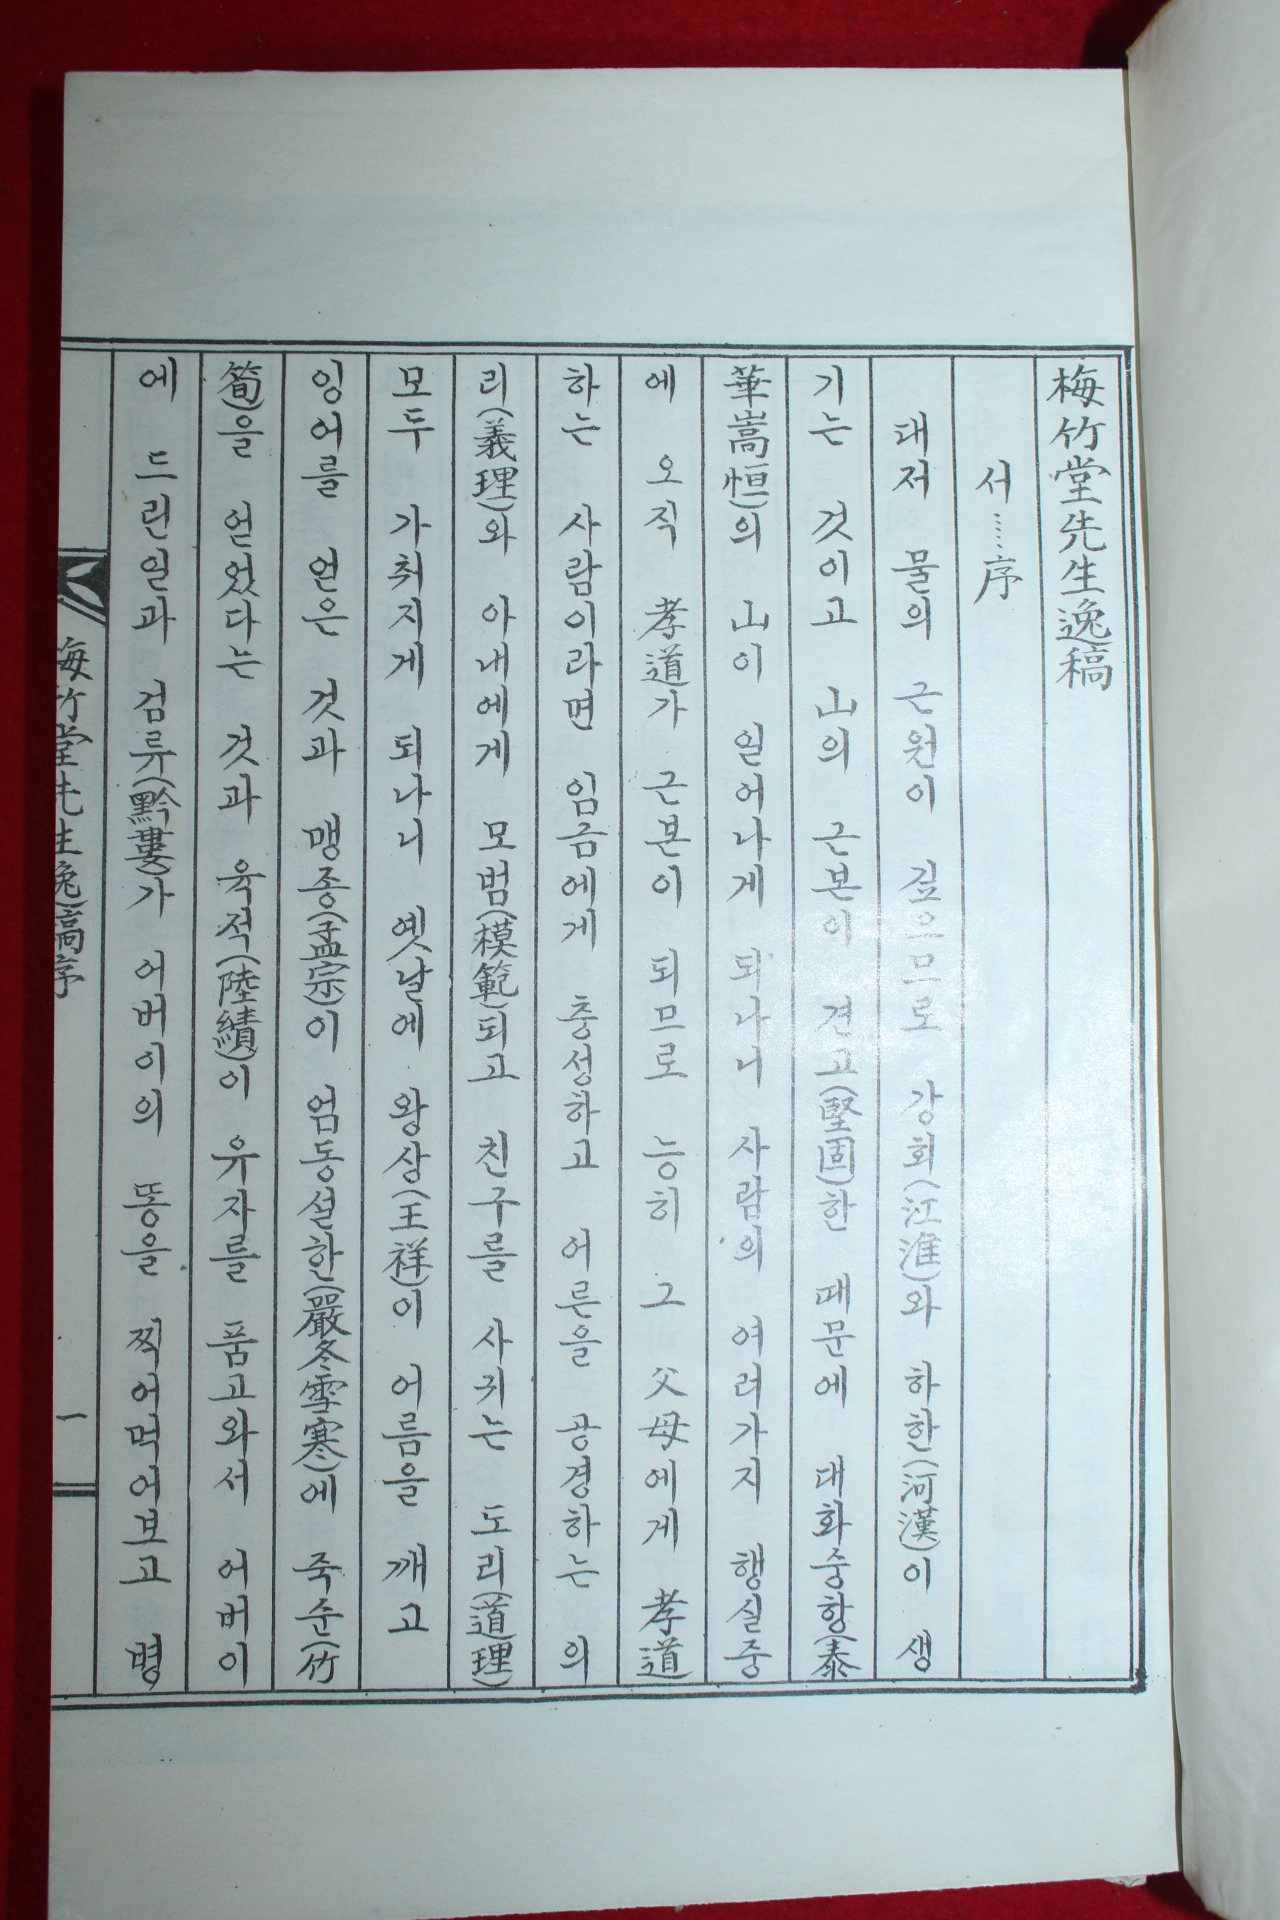 梅竹堂先生逸稿
서……序
대저 물의 근원이 깊으므로 강회(江淮)와 하한(河漢)이 생
기는 것이고 山의 근본이 견고(堅固)한 때문에 대화중항(泰
華嵩恒)의 山이 일어나게 되나니 사람의 여러가지 행실중
에 오직 孝道가 근본이 되므로 능히 그 父母에게 孝道
하는 사람이라면 임금에게 충성하고 어른을 공경하는 의
리(義理)와 아내에게 모범(模範)되고 친구를 사귀는 도리(道理)
모두 가춰지게 되나니 옛날에 왕상(王祥)이 어름을 깨고
잉어를 얻은 것과 맹종(孟宗)이 엄동설한(嚴冬雪寒)에 죽순(竹
筍)을 얻었다는 것과 육적(陸績)이 유자를 품고와서 어버이
에 드린일과 검루(黔婁)가 어버이의 똥을 찍어먹어보고 병
梅竹堂先生逸稿序
一